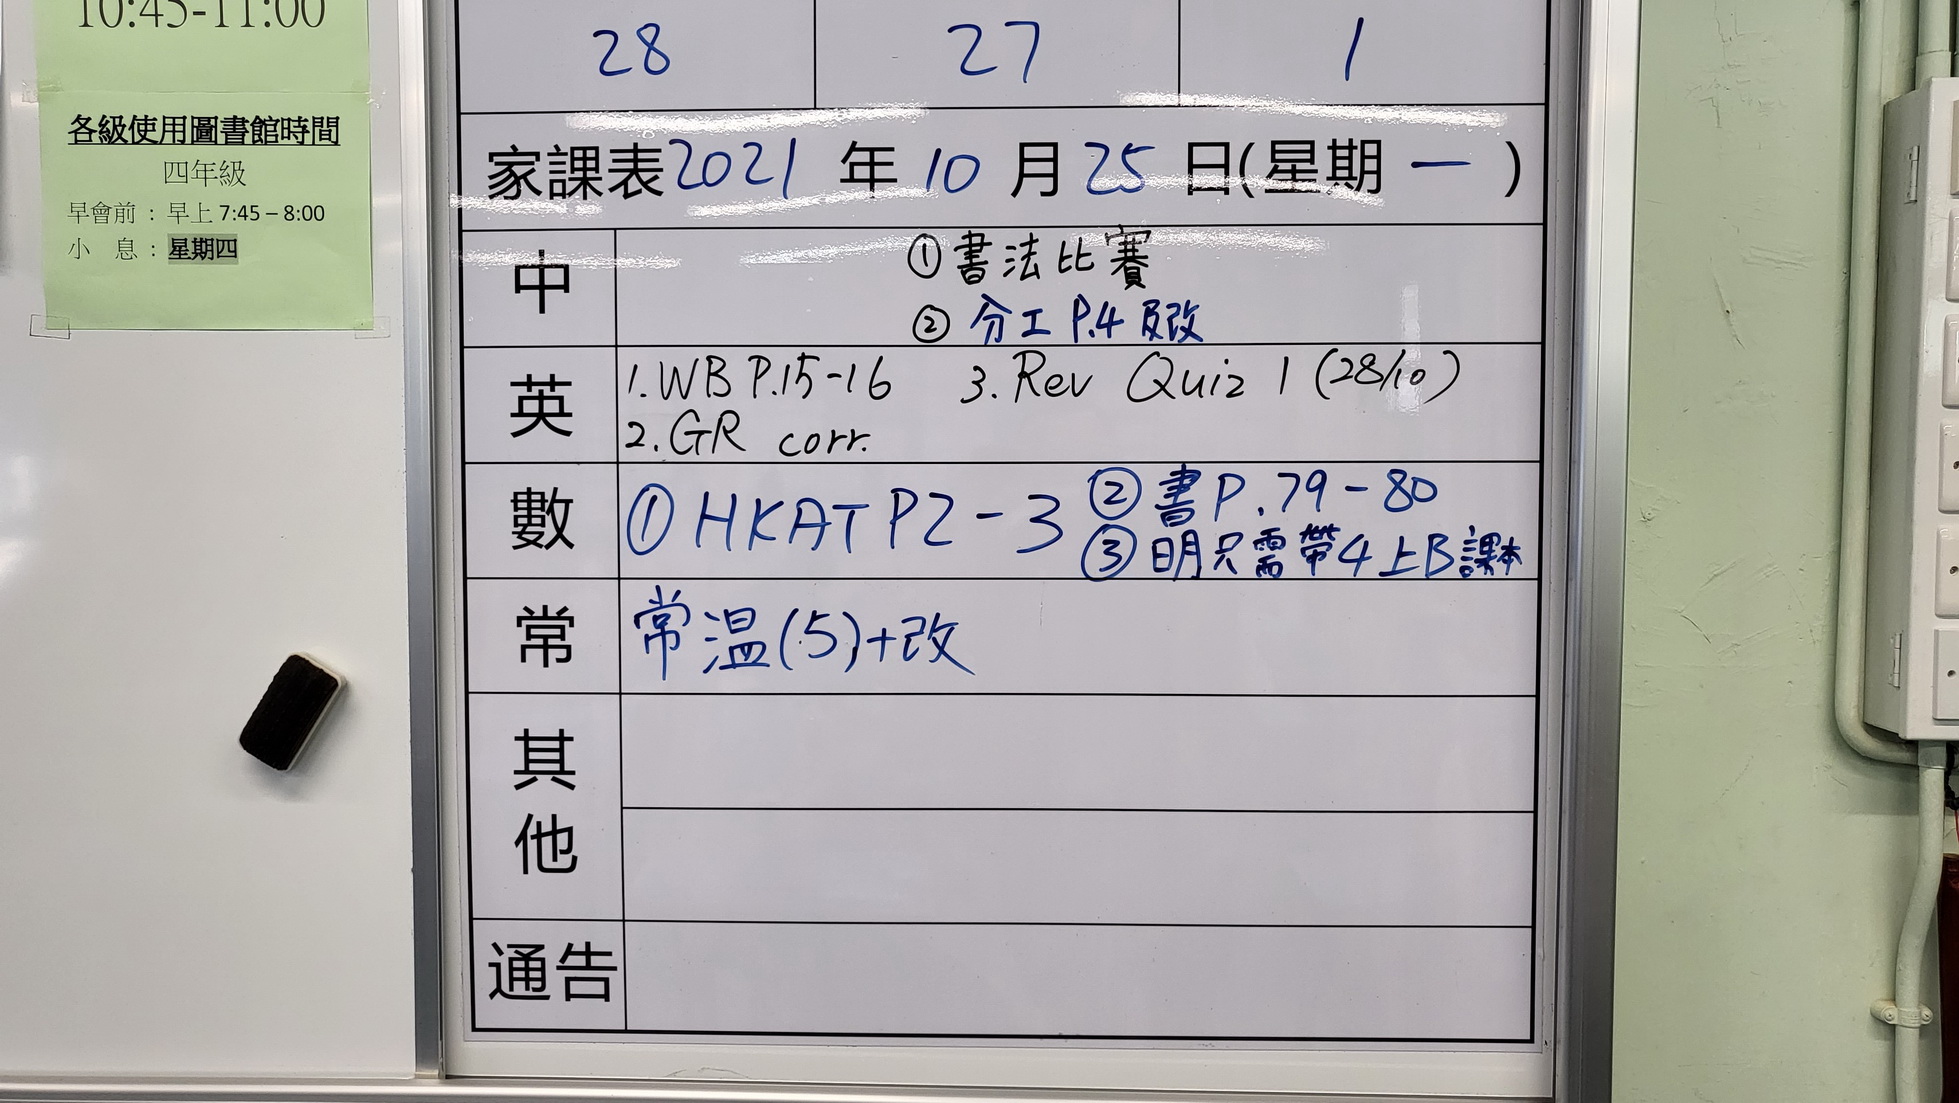 10:45-11:00
各級使用圖書館時間
四年級
早會前 : 早上 7:45 – 8:00
小 息 : 星期四
28 27 1
家課表 2021 年 10 月 25 日(星期 一 )
中
①書法比賽
② 分工 P.4 及改
英
1.WB P.15-16 3.Rev Quiz 1 (28/10)
2.GR corr.
數
① HKAT P2-3 ② 書P.79-80
③ 明只需帶4上B課本
常
常溫(5)+改
其他
通告